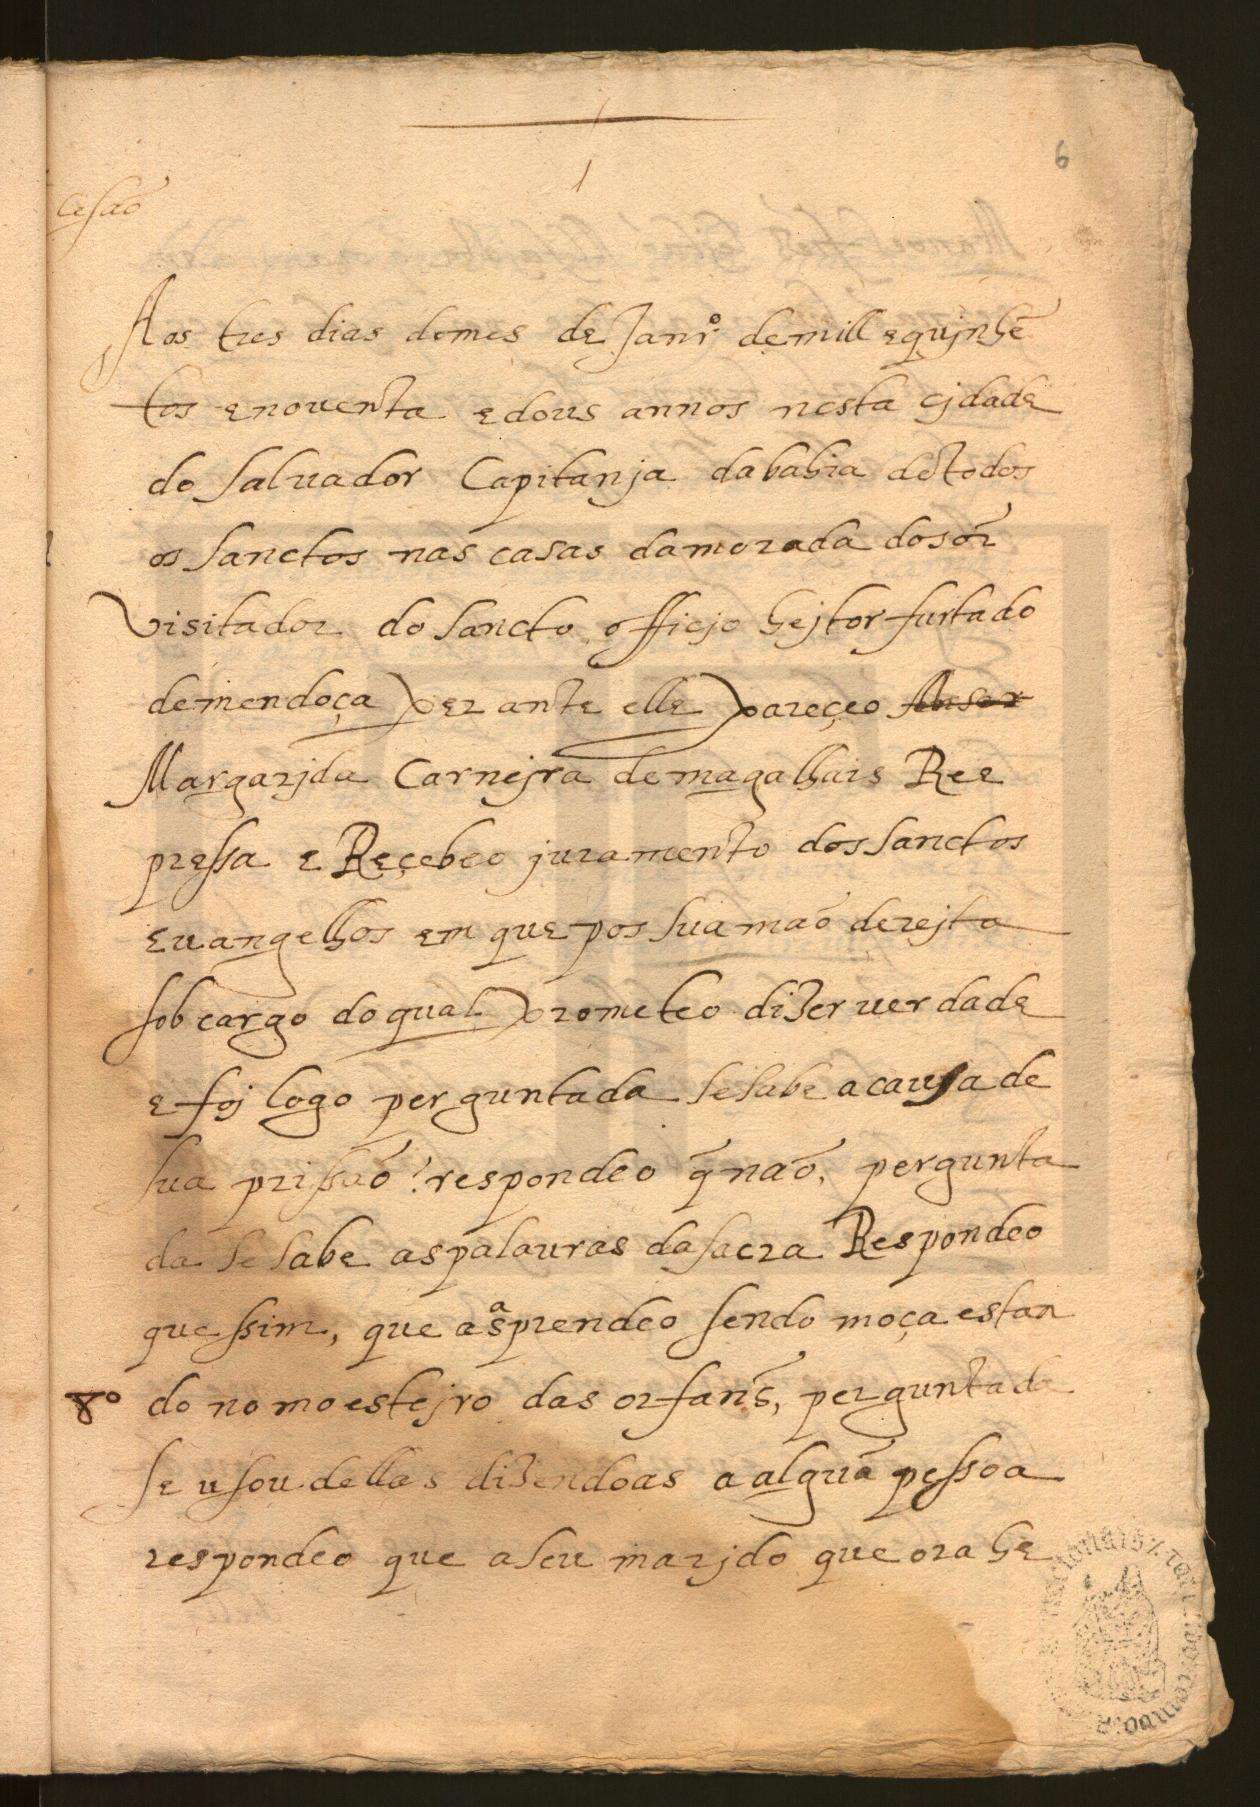 6
1
Cesaõ
Aos tres dias domes de Janrº demill equjnhẽ
tos enouenta edous annos nesta cjdade
do saluador Capitanja dabahia detodos
os sanctos nas casas damorada dosõr
Visitador do sancto officjo hejtor furtado
demendoça perante elle pareçeo
Margarjda Carnejra demagalhais Ree
pressa e Reçebeo juramento dos sanctos
euangelhos em que pos sua maõ derejta
sob cargo do qual prometeo dizer uerdade
e foj logo perguntada se sabe a causa de
sua prissaõ? respondeo q̃ naõ, pergunta
da se sabe as palauras da sacra Respondeo
que ssim, que as aprendeo sendo moça estan
do no moestejro das orfans, perguntada
se usou dellas dizendoas a alguã pessoa
respondeo que a seu marjdo que ora he